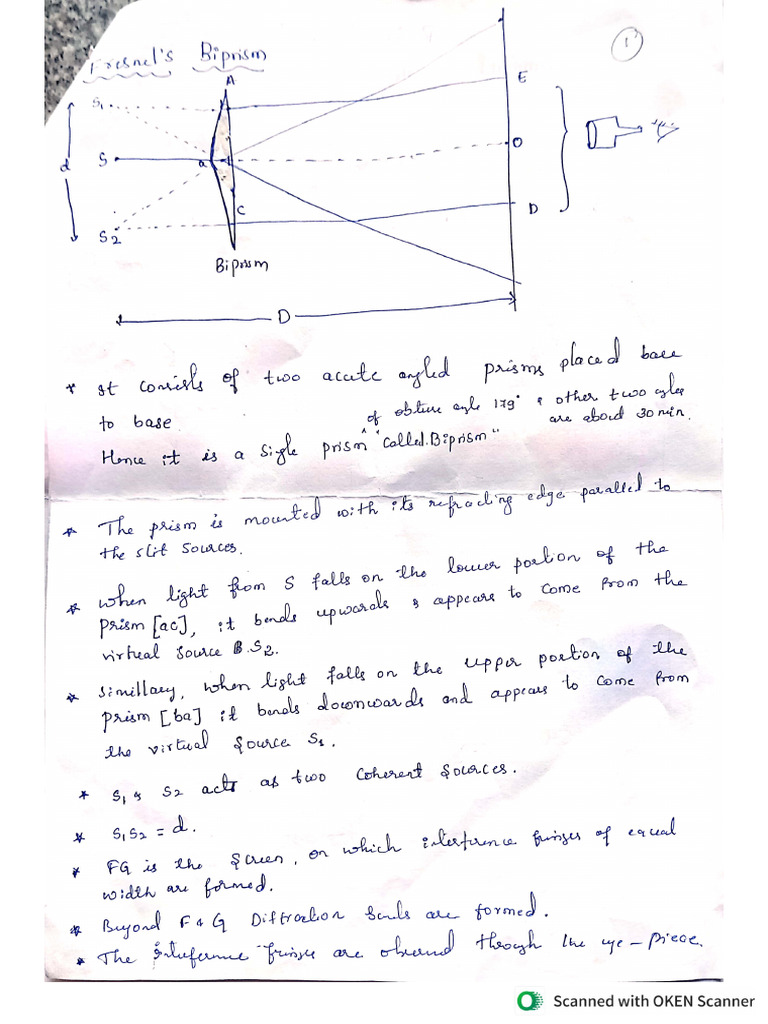 1
Fresnel's Biprism
A
S1
E
d
S
a
O
S2
C
D
Biprism
D
* It consists of two acute angled prisms placed base
to base. of obtuse angle 179° & other two angles
Hence it is a single prism "called Biprism" are about 30 min.
* The prism is mounted with its refracting edge parallel to
the slit sources.
* When light from S falls on the lower portion of the
prism [ac], it bends upwards & appears to come from the
virtual source B.S2.
* Simillary, when light falls on the upper portion of the
prism [ba] it bends downwards and appears to come from
the virtual source S1.
* S1 & S2 acts as two coherent sources.
* S1S2 = d.
* FG is the screen, on which interference fringes of equal
width are formed.
* Beyond F & G Diffraction bands are formed.
* The interference fringes are observed through the eye-piece.
Scanned with OKEN Scanner